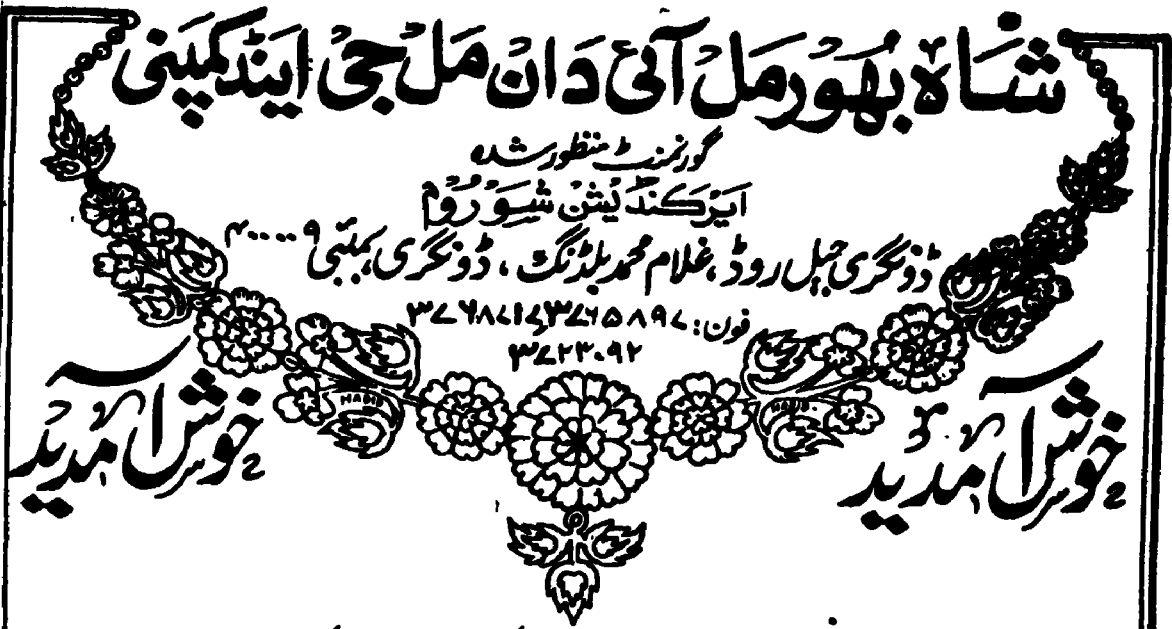 شاہ بھور مل آئی دان مل جی اینڈ کمپنی
گورنمنٹ منظور شدہ
ایرکنڈیشن شوروم
ڈونگری جیل روڈ، غلام محمد بلڈنگ، ڈونگری، بمبئی ۴۰۰۰۰۹
فون: ۳۷۶۵۸۹۷، ۳۷۶۷۸۱۷
۳۷۲۳۰۹۲
خوش آمدید
خوش آمدید